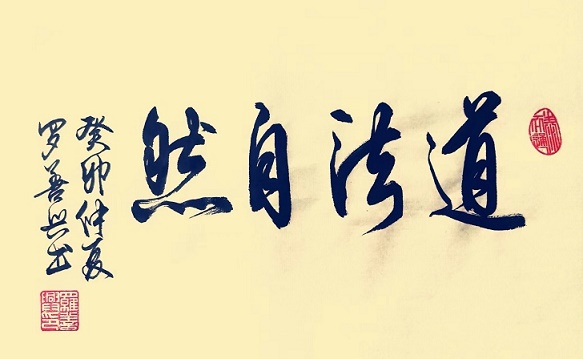 道法自然
癸卯仲夏
罗善兴书